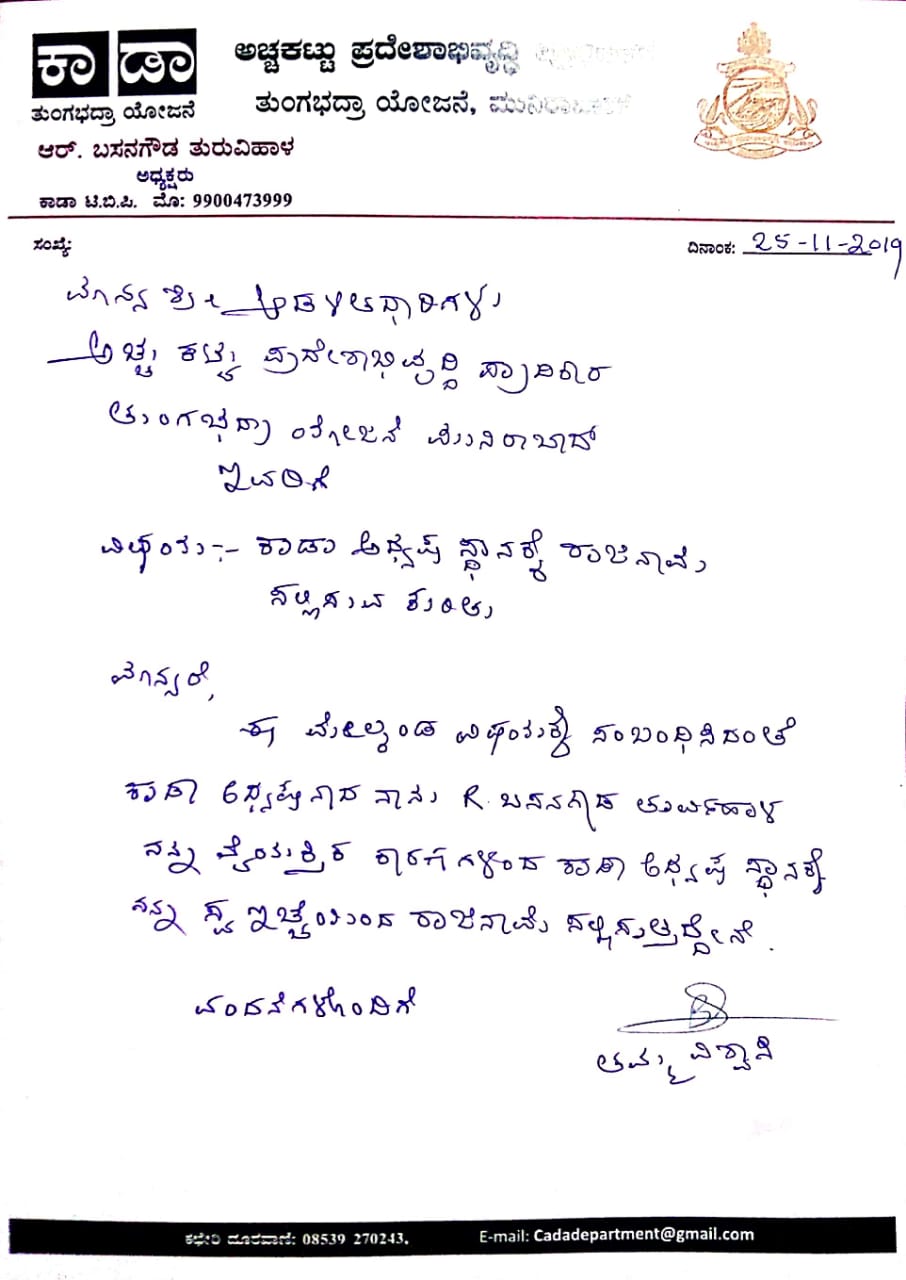 ಕಾಡಾ
ತುಂಗಭದ್ರಾ ಯೋಜನೆ
ಅಚ್ಚಕಟ್ಟು ಪ್ರದೇಶಾಭಿವೃದ್ಧಿ
ತುಂಗಭದ್ರಾ ಯೋಜನೆ, ಮುನಿರಾಬಾದ
ಆರ್. ಬಸನಗೌಡ ತುರುವಿಹಾಳ
ಅಧ್ಯಕ್ಷರು
ಕಾಡಾ ಟಿ.ಬಿ.ಪಿ. ಮೊ: 9900473999
ಸಂಖ್ಯೆ:
ದಿನಾಂಕ: 25-11-2019
ಮಾನ್ಯ ಶ್ರೀ ಆಡಳಿತಾಧಿಕಾರಿಗಳು
ಅಚ್ಚು ಕಟ್ಟು ಪ್ರದೇಶಾಭಿವೃದ್ಧಿ ಪ್ರಾಧಿಕಾರ
ತುಂಗಭದ್ರಾ ಯೋಜನೆ ಮುನಿರಾಬಾದ್
ಇವರಿಗೆ
ವಿಷಯ:- ಕಾಡಾ ಅಧ್ಯಕ್ಷ ಸ್ಥಾನಕ್ಕೆ ರಾಜಿನಾಮೆ
ಸಲ್ಲಿಸುವ ಕುರಿತು
ಮಾನ್ಯರೇ,
ಈ ಮೇಲ್ಕಂಡ ವಿಷಯಕ್ಕೆ ಸಂಬಂಧಿಸಿದಂತೆ
ಕಾಡಾ ಅಧ್ಯಕ್ಷನಾದ ನಾನು R. ಬಸನಗೌಡ ತುರ್ವಿಹಾಳ
ನನ್ನ ವೈಯಕ್ತಿಕ ಕಾರಣಗಳಿಂದ ಕಾಡಾ ಅಧ್ಯಕ್ಷ ಸ್ಥಾನಕ್ಕೆ
ನನ್ನ ಸ್ವ ಇಚ್ಛೆಯಿಂದ ರಾಜಿನಾಮೆ ಸಲ್ಲಿಸುತ್ತಿದ್ದೇನೆ.
ವಂದನೆಗಳೊಂದಿಗೆ
ತಮ್ಮ ವಿಶ್ವಾಸಿ
ಕಛೇರಿ ದೂರವಾಣಿ: 08539 270243,
E-mail: Cadadepartment@gmail.com